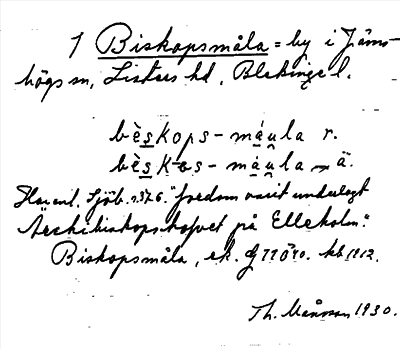 1 Biskopsmåla = by i Jäms-
högs sn, Listers hd, Blekinge l.
bèskops-máula r.
bèskəs-máula ä.
Har enl. Sjöb. s. 376. "fordom varit underlagt
Ärchibiskopshofvet på Elleholm."
Biskopsmåla, ek. G 770 kb 1812.
Th. Månsson 1930.